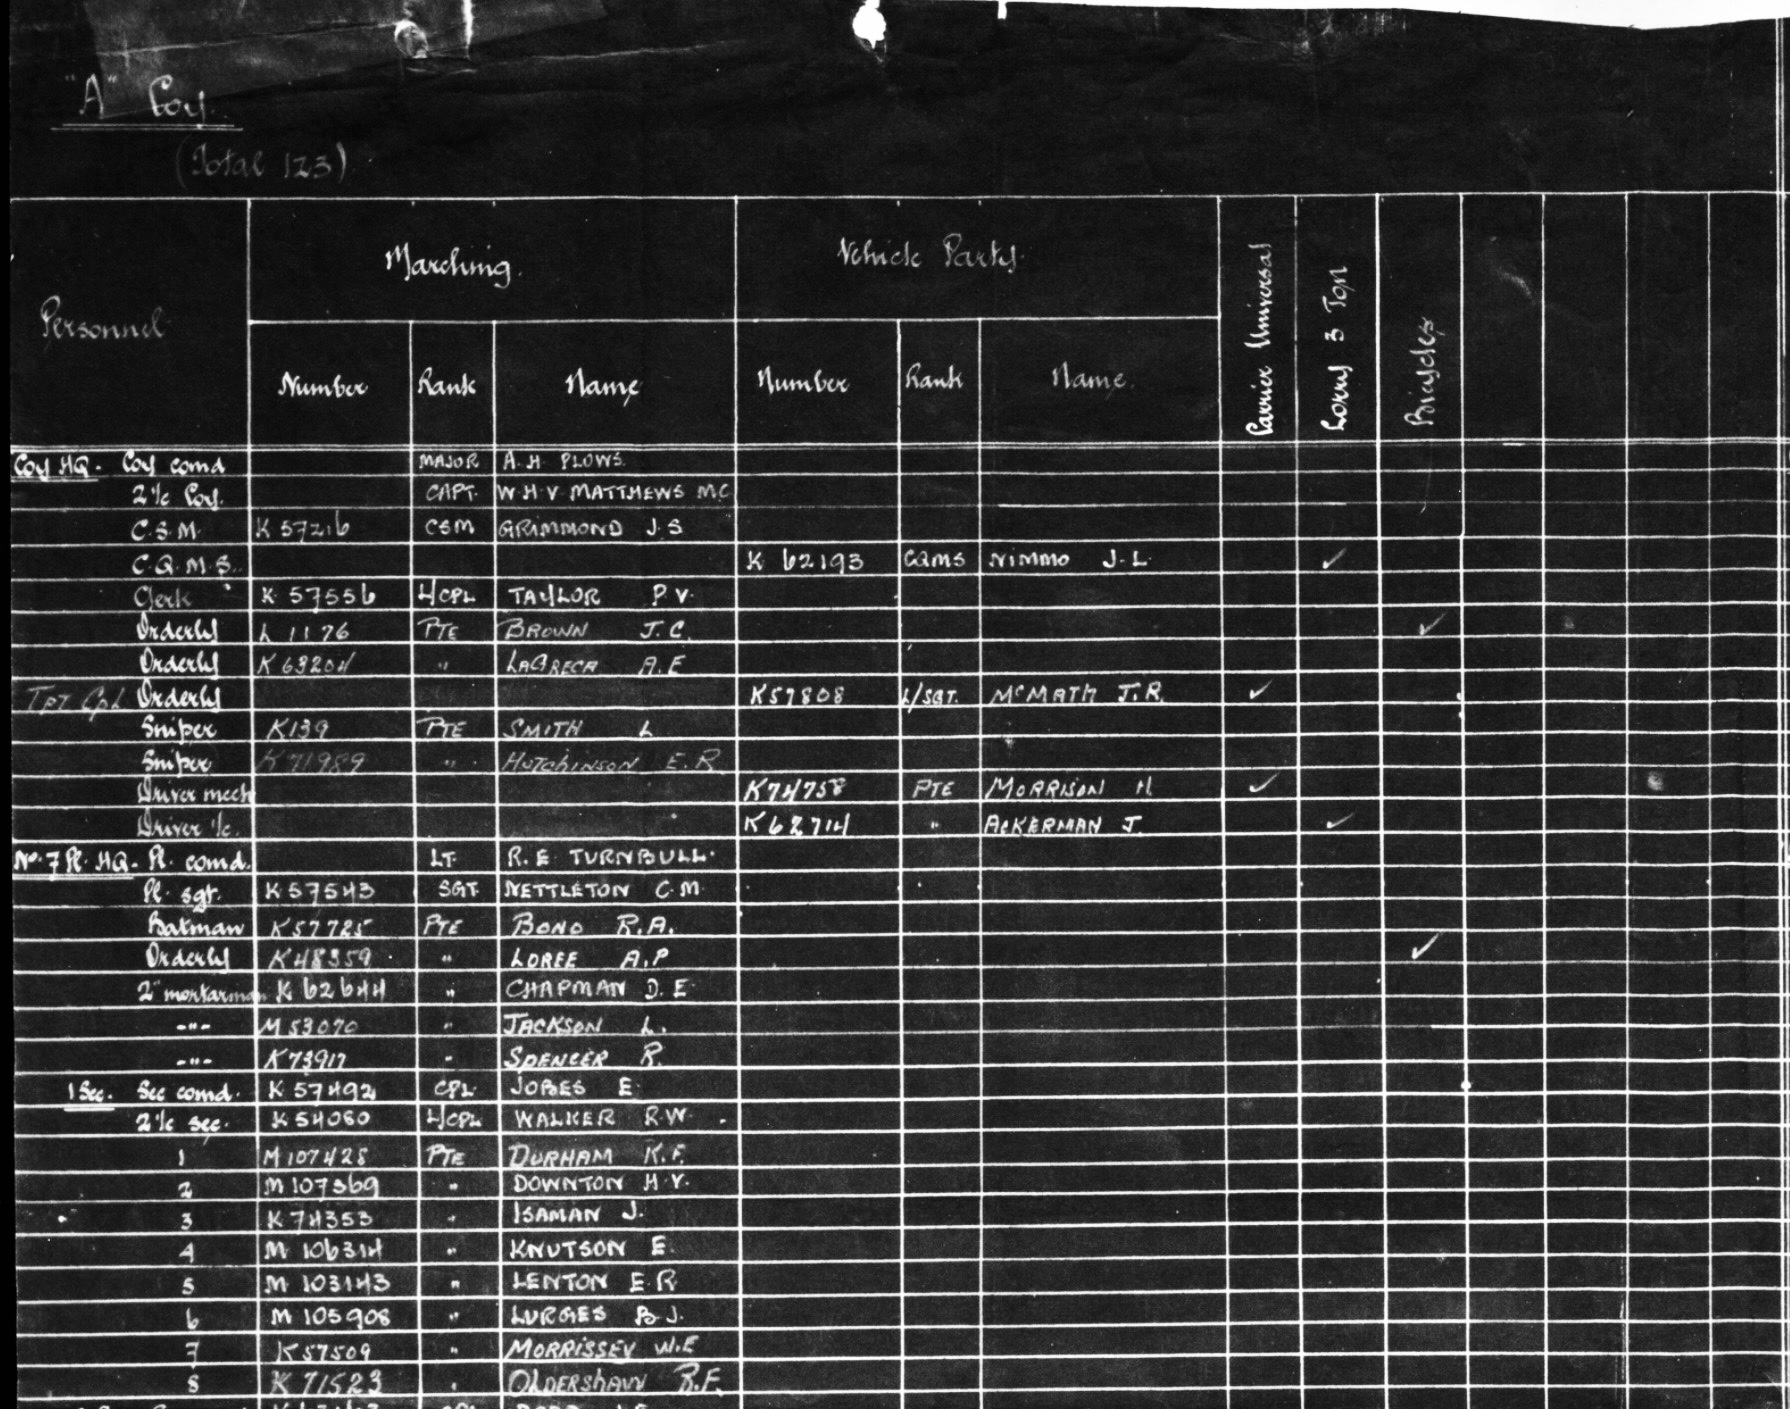 "A" Coy.
(Total 123)
Personnel Marching. Vehicle Party. Carrier Universal Lorry 3 Ton Bicycles
Number Rank Name Number Rank Name.
Coy HQ. Coy comd MAJOR A.H. PLOWS.
2i/c Coy. CAPT. W.H.V. MATTHEWS MC
C.S.M. K 57216 CSM GRIMMOND J.S
C.Q.M.S. K 62193 CQMS NIMMO J.L. ✓
Clerk K 57556 L/CPL TAYLOR P.V.
Orderly L 1176 PTE BROWN J.C. ✓
Orderly K 63204 " LAGRECA A.E
Tpt Cpl Orderly K57808 L/SGT. McMATH J.R. ✓
Sniper K139 PTE SMITH L
Sniper K 71989 " HUTCHINSON E.R.
Driver mech K74758 PTE MORRISON H ✓
Driver i/c. K62714 " ACKERMAN J. ✓
No. 7 Pl. HQ. Pl. comd. LT. R.E. TURNBULL.
Pl. sgt. K57543 SGT. NETTLETON C.M.
Batman K57725 PTE BOND R.A.
Orderly K48359 " LOREE A.P ✓
2" mortarman K 62644 " CHAPMAN D.E.
-"- M 53070 " JACKSON L.
-"- K73917 " SPENCER R.
1 Sec. Sec comd. K 57492 CPL. JOBES E.
2i/c sec. K 54080 L/CPL WALKER R.W.
1 M107428 PTE DURHAM K.F.
2 M 107369 " DOWNTON H.V.
3 K 74353 " ISAMAN J.
4 M 106314 " KNUTSON E.
5 M 103143 " LENTON E.R
6 M 105908 " LURGES B.J.
7 K57509 " MORRISSEY W.E
8 K 71523 " OLDERSHAW R.F.